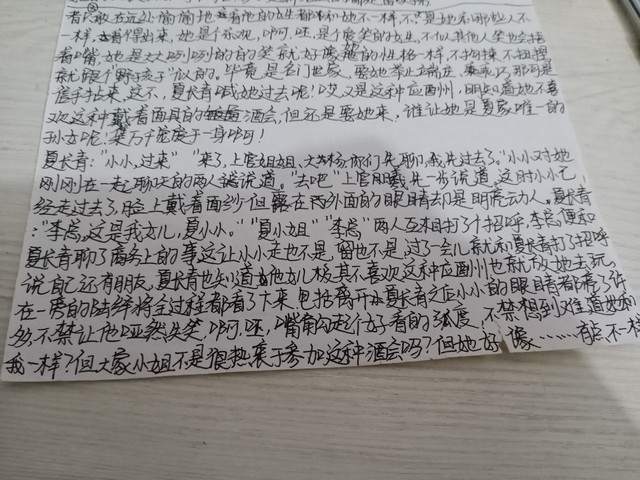 者只敢在远处偷偷地看他的女生都和她不一样,不!是她和那些人不
一样,看得出来,她是个乐观,啊,呸,是个爱笑的女生,不似其他人笑也会捂
着嘴,她是大大咧咧的的笑就好像她的性格一样,不拘束不扭捏
就跟个野孩子似的。毕竟是名门世家,要她举止端庄、乖巧,那可是
信手拈来,这不,夏长青喊她过去呢!哎又是这种应酬,明知道她不喜
欢这种戴着面具的酒会,但还是要她来,谁让她是夏家唯一的
孙女呢!集万千宠爱于一身啊!
夏长青:“小小,过来”“来了,上官姐姐、大林,你们先聊,我先过去了。”小小对她
刚刚在一起聊天的两人说道。“去吧”上官曦先一步说道,这时小小已
经走过去了,脸上戴着面纱但露在外面的眼睛却是明亮动人。夏长青
:“李总,这是我女儿,夏小小。”“夏小姐”“李总”两人互相打了个招呼,李总便和
夏长青聊了商务上的事,这让小小走也不是,留也不是,过了一会儿就和夏长青打了招呼
说自己还有朋友,夏长青也知道她女儿极其不喜欢这种应酬也就放她去玩,
在一旁的陆绎将全过程都看了下来,包括离开夏长青之后小小的眼睛都清了许
多,不禁让他哑然失笑,啊,呸,嘴角勾起个好看的弧度,不禁想到难道她和
我一样?但大家小姐不是很热衷于参加这种酒会吗?但她好像……有点不一样